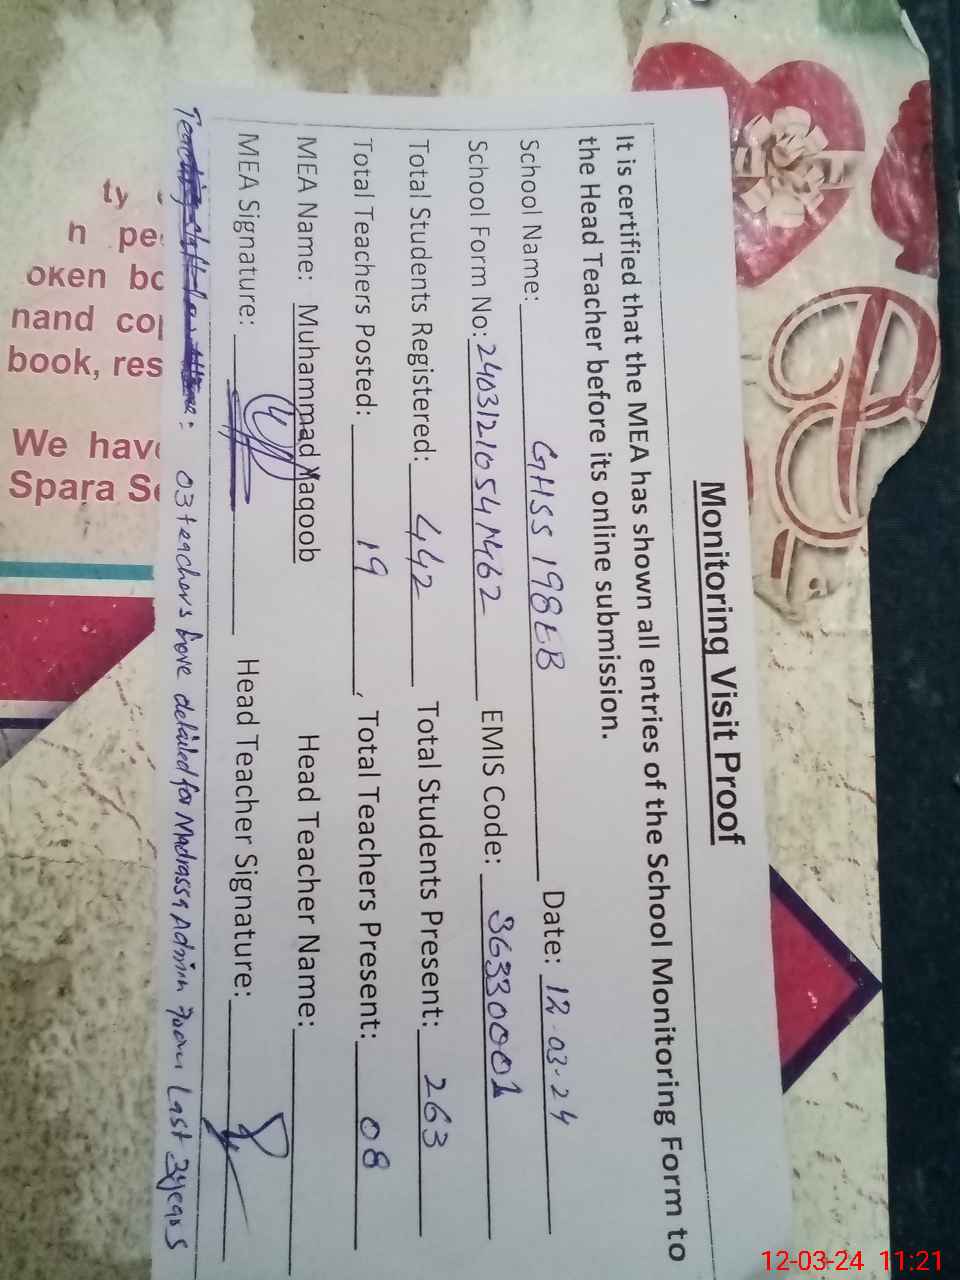 Monitoring Visit Proof
It is certified that the MEA has shown all entries of the School Monitoring Form to
the Head Teacher before its online submission.
School Name: GHSS 198EB Date: 12-03-24
School Form No: 2403121054M462 EMIS Code: 36330001
Total Students Registered: 442 Total Students Present: 263
Total Teachers Posted: 19, Total Teachers Present: 08
MEA Name: Muhammad Yaqoob Head Teacher Name:
MEA Signature: Head Teacher Signature:
: 03 teachers have detailed for Madrassa Admin from Last 3years
ty
h pe
oken bo
nand co
book, res
We hav
Spara S
12-03-24 11:21